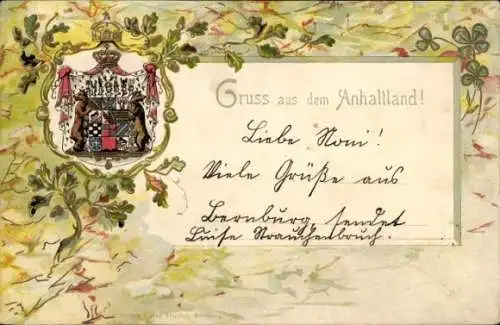 Gruss aus dem Anhaltland!
Liebe Noni!
Viele Grüße aus
Bernburg, sendet
Luise Strauchenbruch.